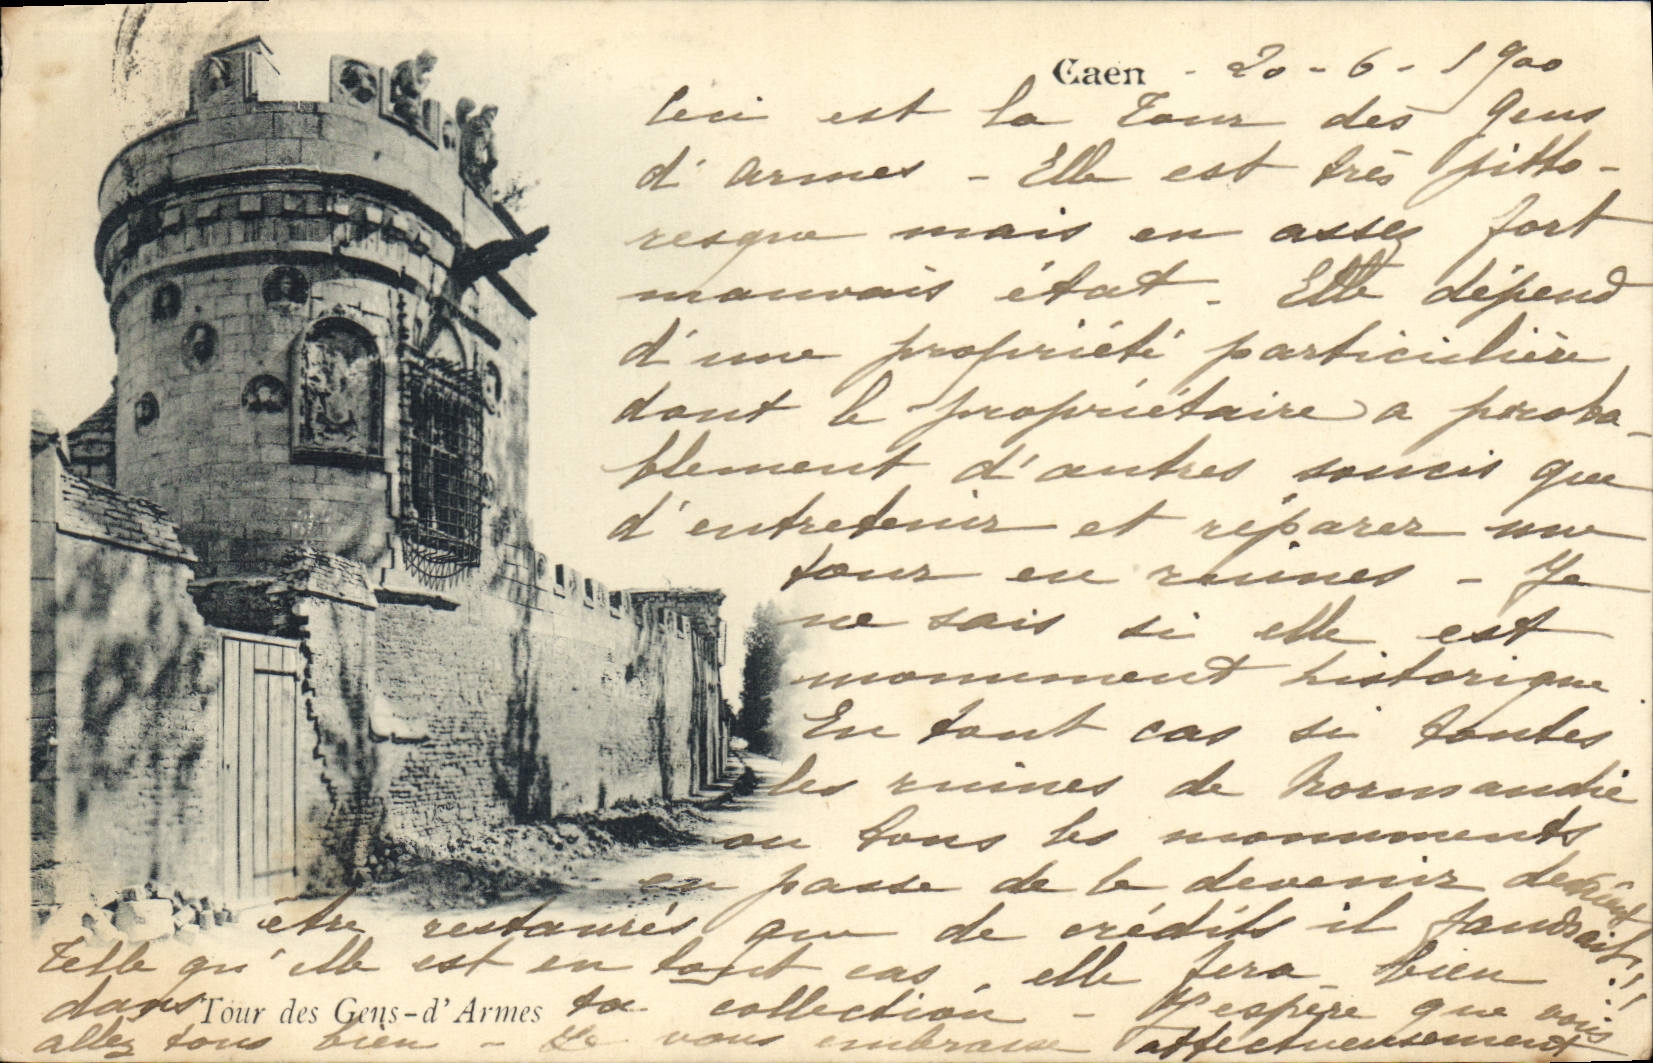 Caen - 20-6-1900
Ceci est la Tour des Gens
d'armes - Elle est très pitto-
resque mais en assez fort
mauvais état - Elle dépend
d'une propriété particulière
dont le propriétaire a proba-
blement d'autres soucis que
d'entretenir et réparer une
tour en ruines - Je
ne sais si elle est
monument historique
En tout cas si toutes
les ruines de Normandie
ou tous les monuments
en passe de le devenir devaient
être restaurés que de crédits il faudrait!!
Telle qu'elle est en tout cas, elle fera bien
dans ta collection - J'espère que vous
Tour des Gens-d'Armes
allez tous bien - Je vous embrasse affectueusement